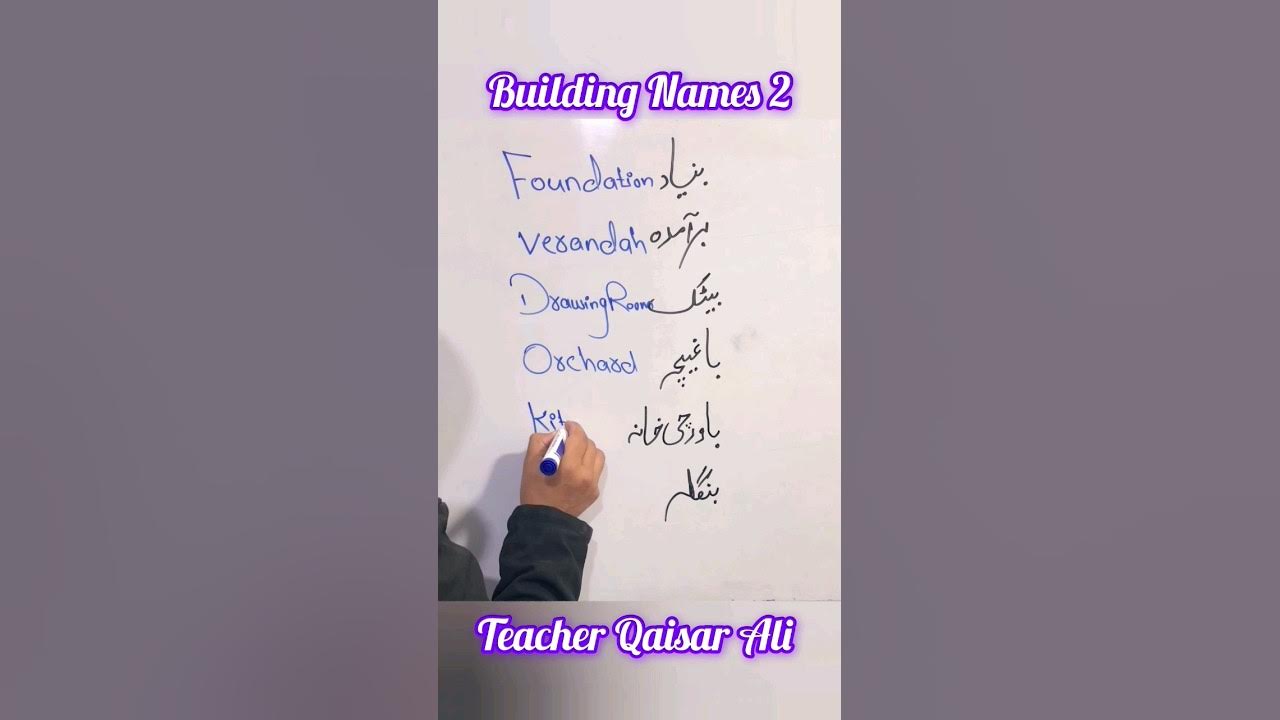 Building Names 2
Foundation بنیاد
Verandah برآمدہ
Drawing Room بیٹک
Orchard باغیچہ
Kit باورچی خانہ
بنگلہ
Teacher Qaisar Ali